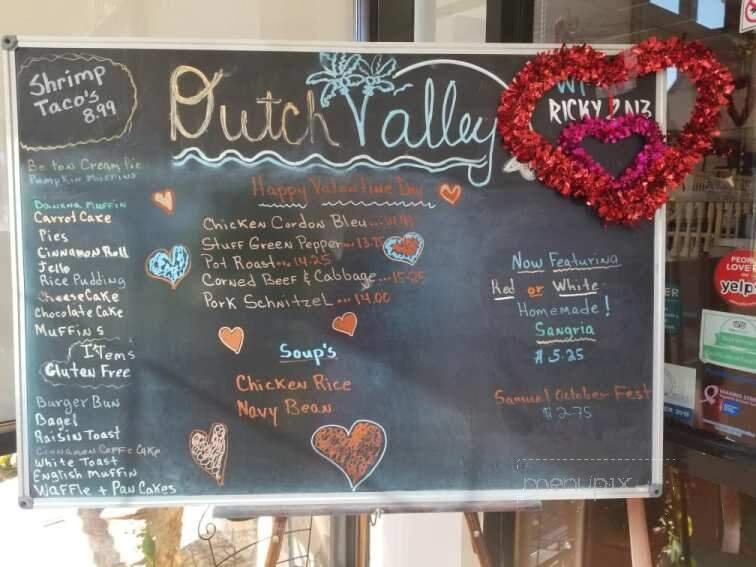 Shrimp
Taco's
8.99
Dutch Valley
WI
RICKY
Boston Cream Pie
Pumpkin Muffins
Banana Muffin
Carrot Cake
Pies
Cinnamon Roll
Jello
Rice Pudding
CheeseCake
Chocolate Cake
Muffins
ITems
Gluten Free
Burger Bun
Bagel
Raisin Toast
Cinnamon Coffe Cake
White Toast
English Muffin
Waffle + PanCakes
Happy Valentine Day
Chicken Cordon Bleu
Stuff Green Pepper... 13.75
Pot Roast... 14.25
Corned Beef & Cabbage... 15.25
Pork Schnitzel... 14.00
Soup's
Chicken Rice
Navy Bean
Now Featuring
Red or White
Homemade!
Sangria
$ 5.25
Samuel October Fest
$ 2.75
PEOPLE
LOVE
yelp
menupix